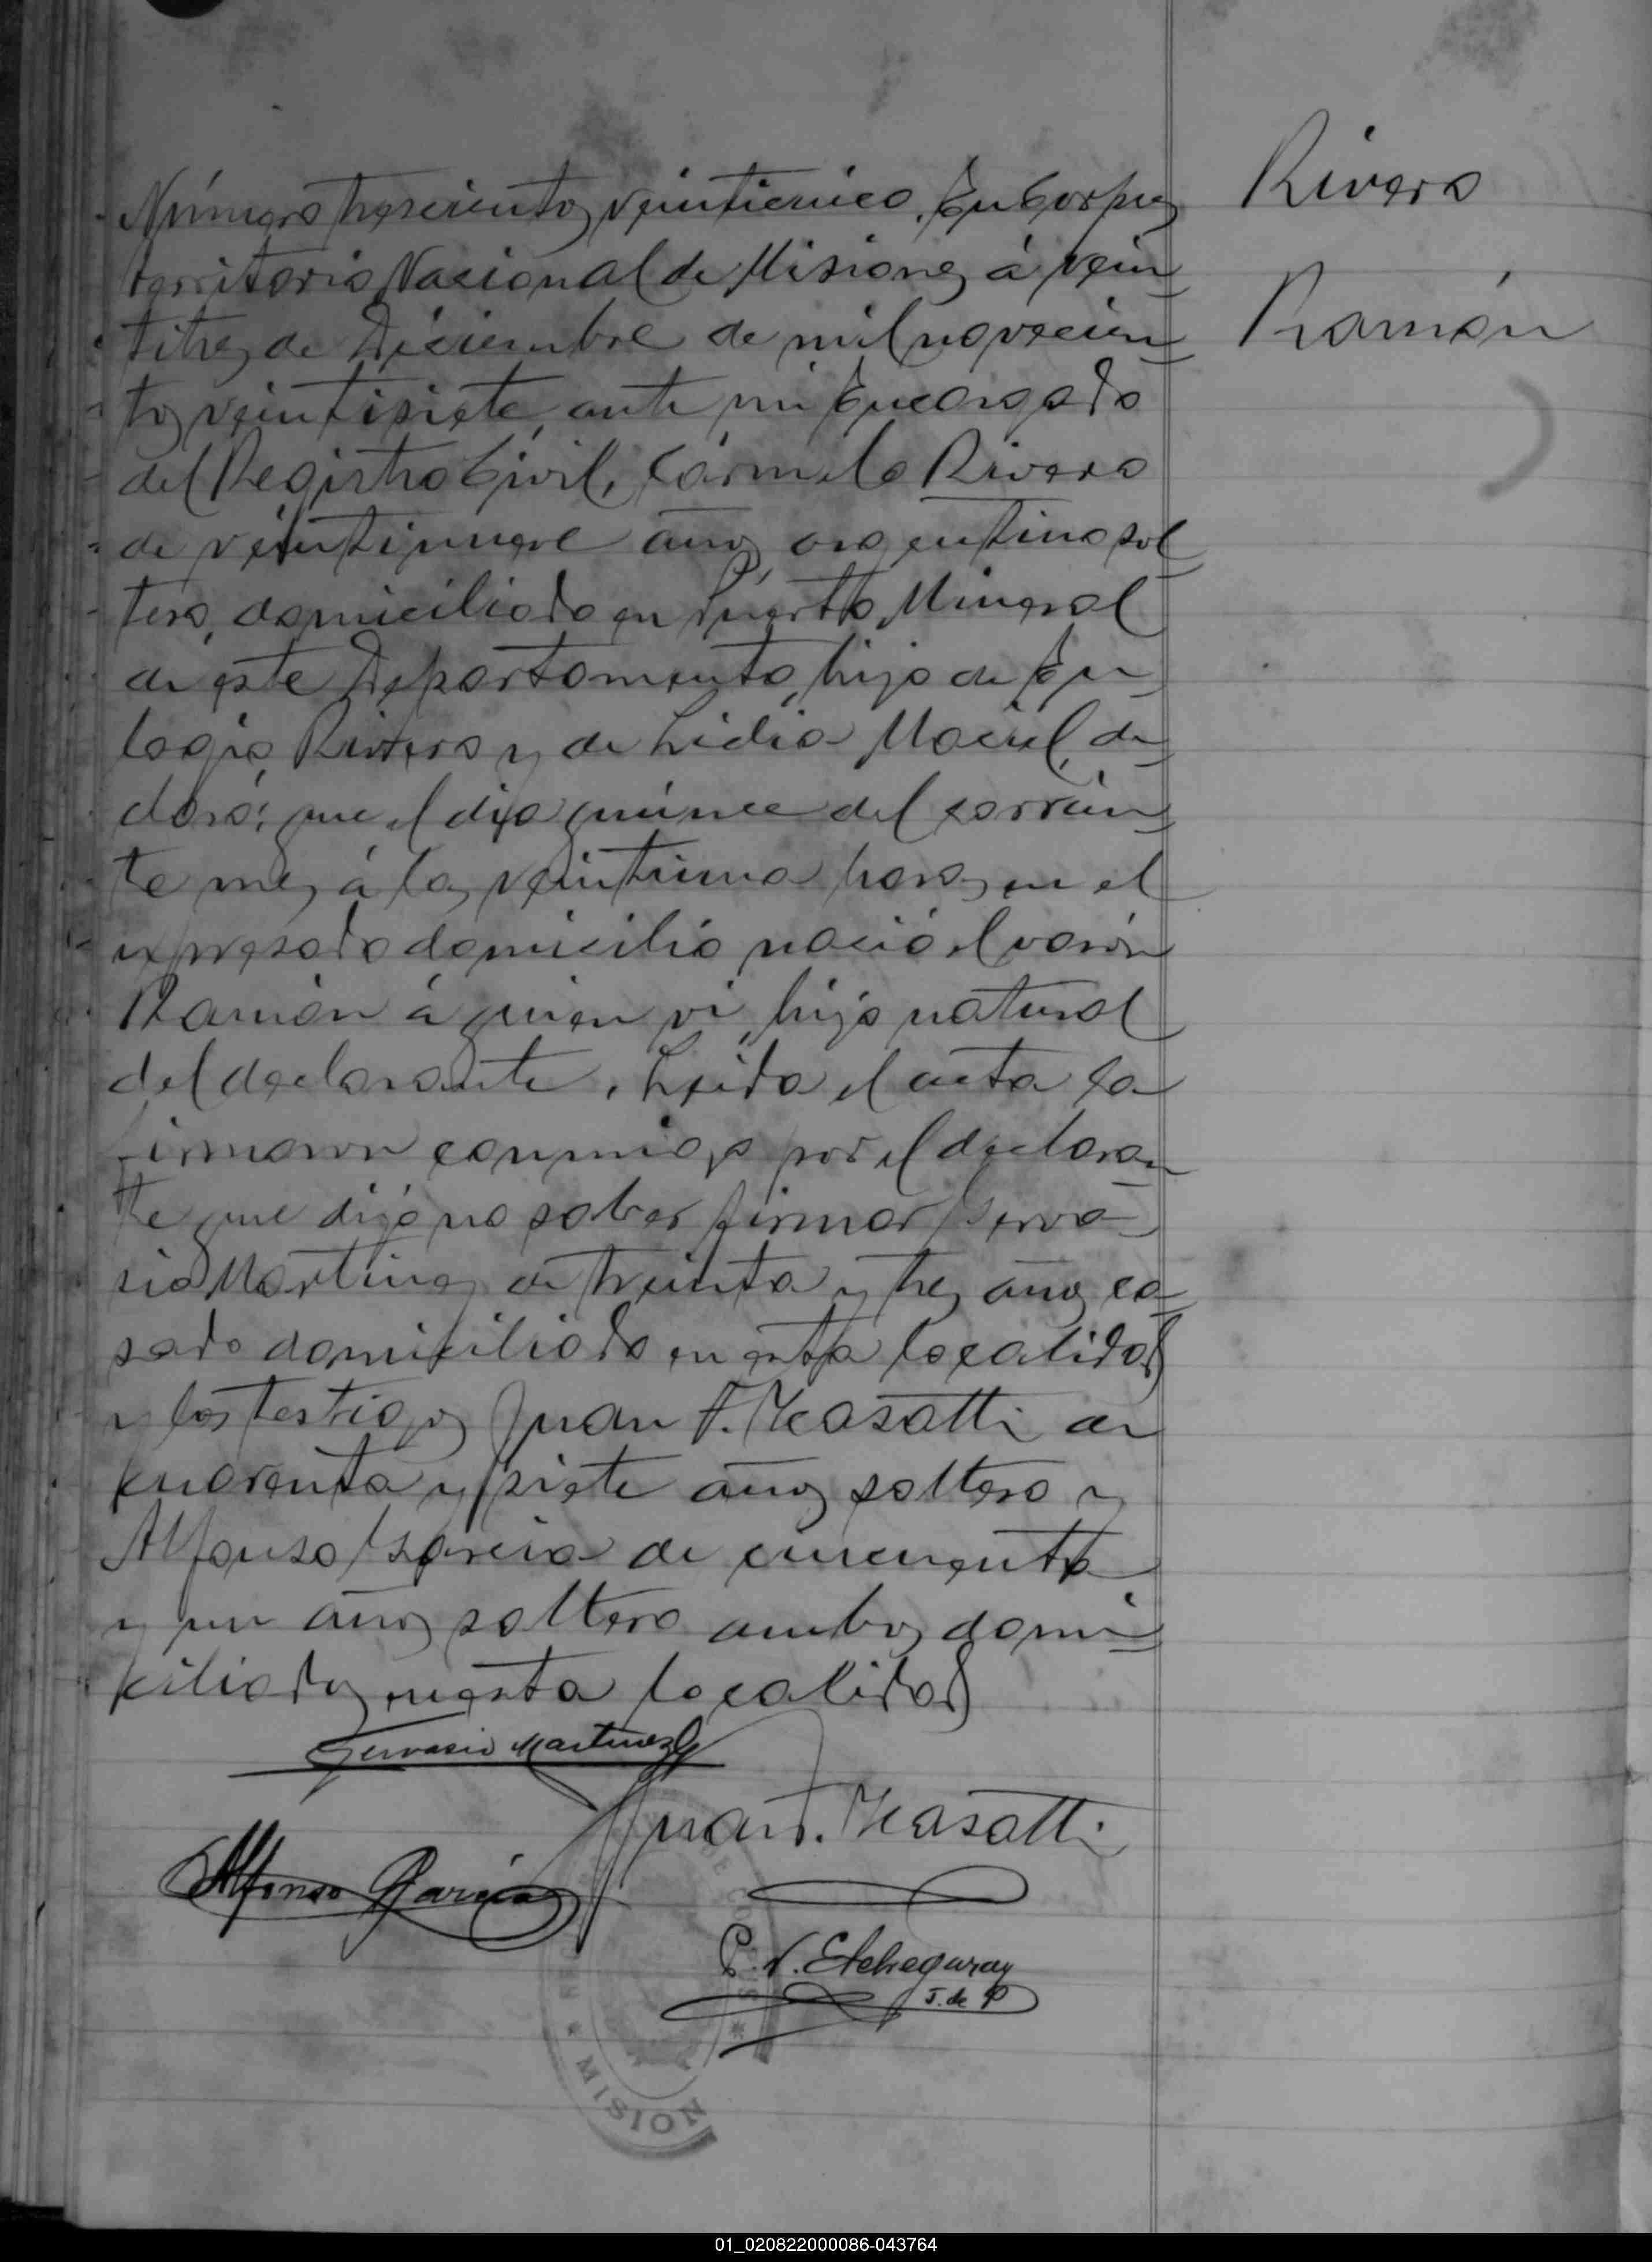 Rivero
Ramón
Número trescientos veinticinco. En Corpus
territorio Nacional de Misiones á vein
titres de Diciembre de mil novecien
tos veintisiete, ante mi Encargado
del Registro Civil, Cármelo Rivero
de veintinueve años argentino sol
tero, domiciliado en Puerto Mineral
de este Departamento, hijo de Eu
logio Rivero y de Lidia Maciel, de
claró: que el dia quince del corrien
te mes á las veintiuna horas en el
expresado domicilio nació el varón
Ramón á quien vi, hijo natural
del declarante. Leida el acta la
firmaron conmigo por el declaran
te que dijo no saber firmar Gerva
sio Martinez de treinta y tres años ca
sado domiciliado en esta localidad
y los testigos Juan F. Measatti de
cuarenta y siete años soltero y
Alfonso Garcia de cincuenta
y un años soltero ambos domi
ciliados en esta localidad
Gervasio Martinez
Juan F. Measatti
Alfonso García
P. N. Etchegaray
J. de P
MISION
01_020822000086-043764